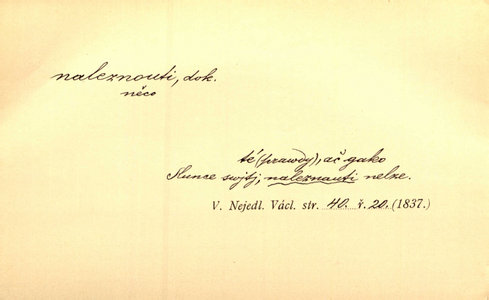 naleznouti, dok.
něco
té (prawdy), ač gako
Slunce swjtj, naleznauti nelze.
V. Nejedl. Václ. str. 40. ř. 20. (1837.)